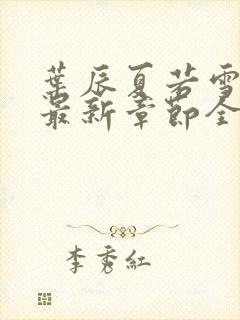 葉辰夏若雪
最新章節全
李秀紅